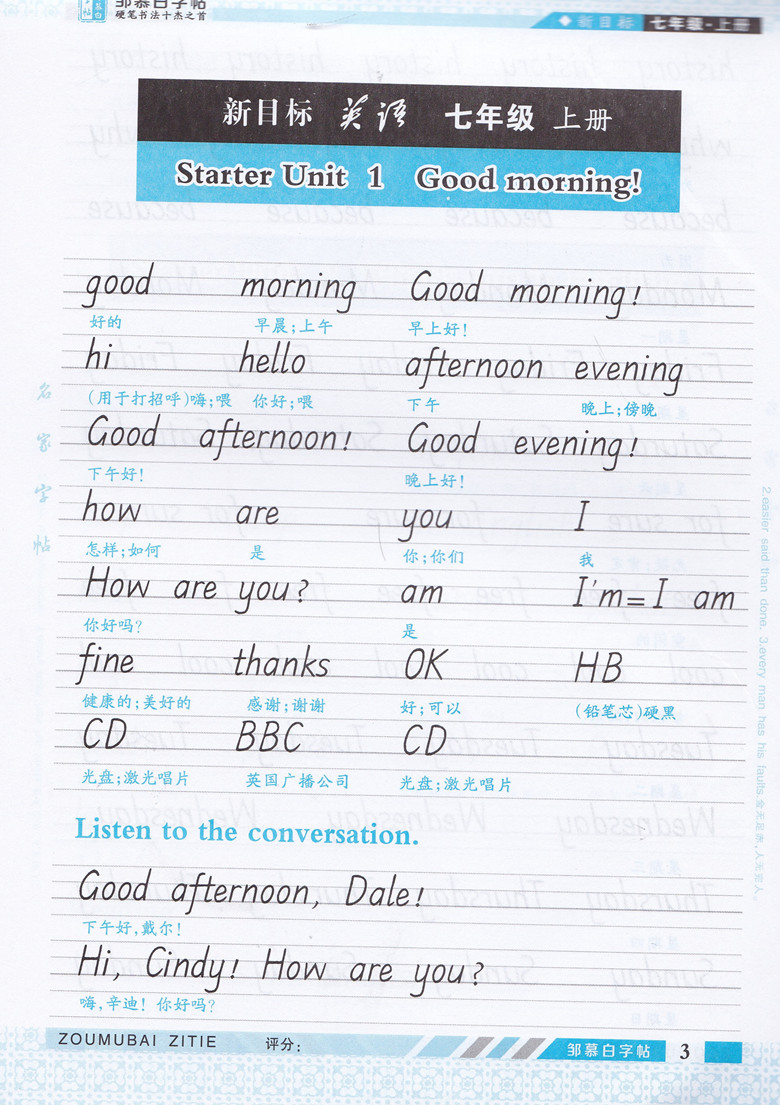 邹慕白字帖
硬笔书法十杰之首
◆ 新目标 七年级·上册
新目标 英语 七年级 上册
Starter Unit 1 Good morning!
good morning Good morning!
好的 早晨;上午 早上好!
hi hello afternoon evening
(用于打招呼)嗨;喂 你好;喂 下午 晚上;傍晚
Good afternoon! Good evening!
下午好! 晚上好!
how are you I
怎样;如何 是 你;你们 我
How are you? am I'm=I am
你好吗? 是
fine thanks OK HB
健康的;美好的 感谢;谢谢 好;可以 (铅笔芯)硬黑
CD BBC CD
光盘;激光唱片 英国广播公司 光盘;激光唱片
Listen to the conversation.
Good afternoon, Dale!
下午好,戴尔!
Hi, Cindy! How are you?
嗨,辛迪! 你好吗?
名家字帖
2.easier said than done. 3.every man has his faults.金无足赤,人无完人。
ZOUMUBAI ZITIE 评分: 邹慕白字帖 3